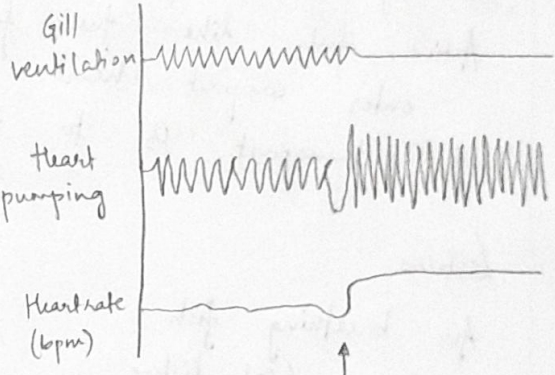 Gill
ventilation
Heart
pumping
Heart rate
(bpm)